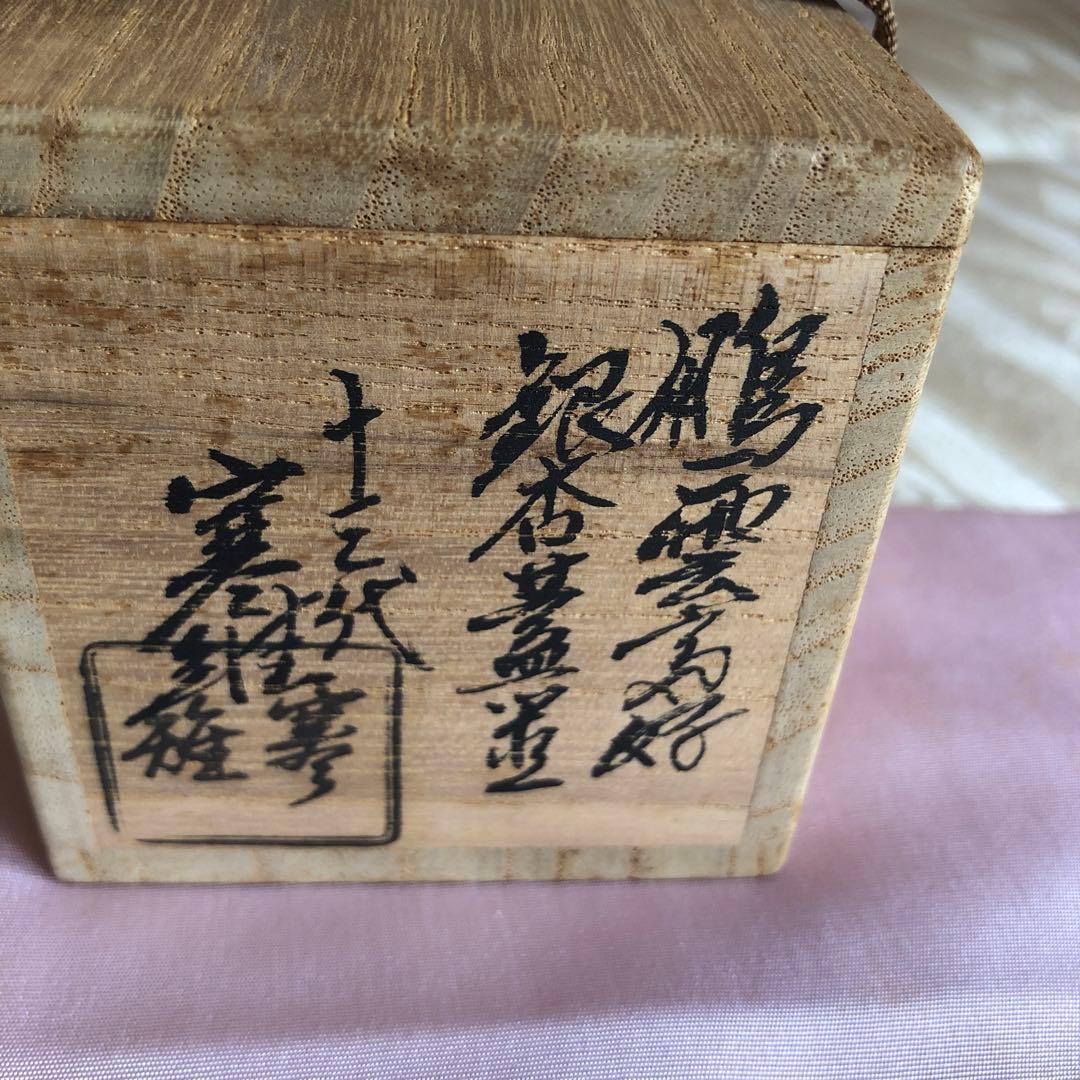 鵬雲斎好
銀杏蓋置
十三代
寒雉